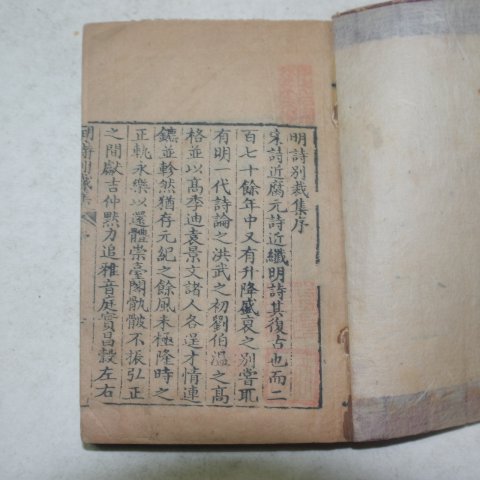 明詩別裁集序
宋詩近腐元詩近纖明詩其復古也而二
百七十餘年中又有升降盛衰之別嘗取
有明一代詩論之洪武之初劉伯溫之高
格並以高季迪袁景文諸人各逞才情連
鑣並軫然猶存元紀之餘風未極隆時之
正軌永樂以還體崇臺閣骫骳不振弘正
之間獻吉仲默力追雅音庭實昌穀左右
明詩別裁集 序